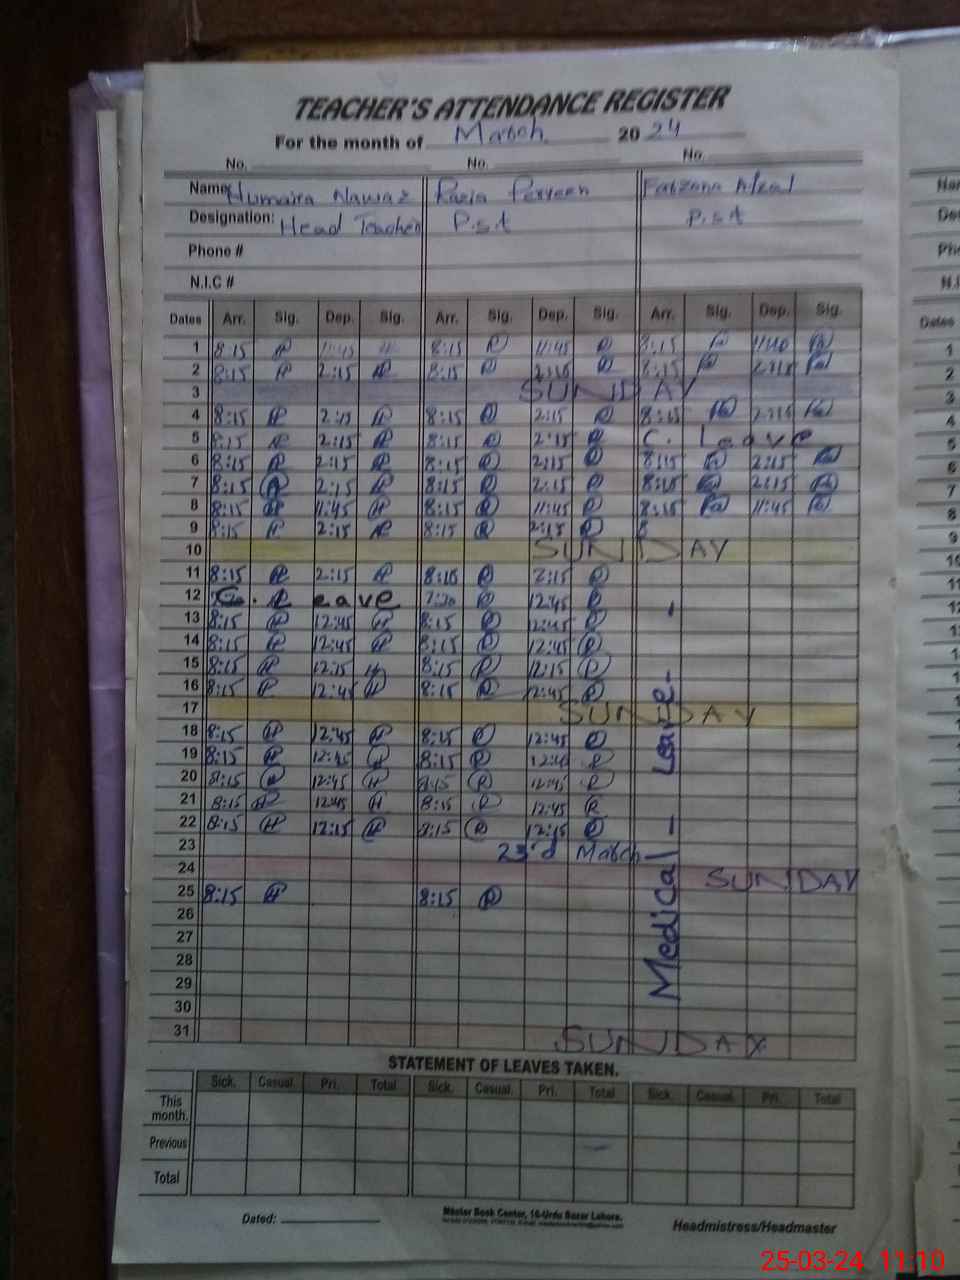 TEACHER'S ATTENDANCE REGISTER
For the month of March 2024
No. No. No.
Name Humaira Nawaz Razia Perveen Farzana Afzal
Designation: Head Teacher P.s.t P.s.t
Phone #
N.I.C #
Dates Arr. Sig. Dep. Sig. Arr. Sig. Dep. Sig. Arr. Sig. Dep. Sig.
1 8:15 11:45 8:15 11:45 8:15
2 8:15 2:15 8:15 8:15 2:15
3 SUNDAY
4 8:15 2:15 8:15 2:15 8:15 2:15
5 8:15 2:15 8:15 2:15 C. Leave
6 8:15 2:15 8:15 2:15 8:15 2:15
7 8:15 2:15 8:15 2:15 8:15 2:15
8 8:15 11:45 8:15 11:45 8:15 11:45
9 8:15 2:15 8:15 2:15 8
10 SUNDAY
11 8:15 2:15 2:15
12 C. Leave 7:30 12:45
13 8:15 12:45 8:15 12:45
14 8:15 12:45 8:15 12:45
15 8:15 12:15 8:15 12:15
16 8:15 12:45 8:15 12:45
17 SUNDAY
18 8:15 12:45 8:15 12:45
19 8:15 12:45 8:15 12:45
20 8:15 12:45 8:15 12:45
21 8:15 12:45 8:15 12:45
22 8:15 12:15 8:15 12:15
23 23rd March
24 SUNDAY
25 8:15 8:15
26
27
28
29
30
31 SUNDAY
Medical - Leave -
STATEMENT OF LEAVES TAKEN.
Sick. Casual. Pri. Total Sick. Casual. Pri. Total Sick. Casual. Pri. Total
This month.
Previous
Total
Dated:
Master Book Center, 16-Urdu Bazar Lahore.
Headmistress/Headmaster
25-03-24 11:10